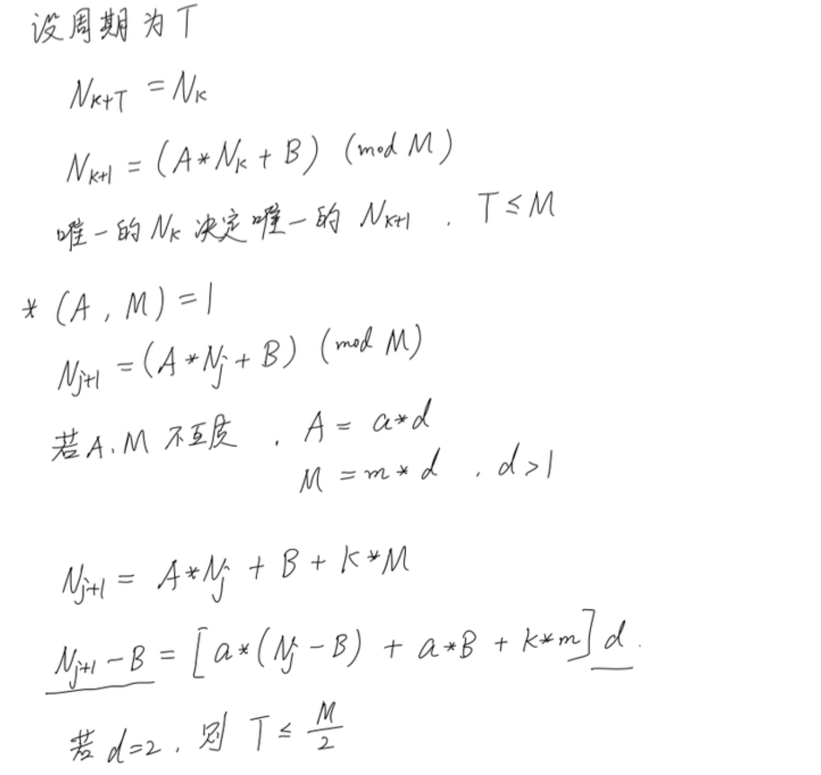 设周期为T
N_{k+T} = N_k
N_{k+1} = (A*N_k + B) (mod M)
唯一的 N_k 决定唯一的 N_{k+1} . T ≤ M
* (A, M) = 1
N_{j+1} = (A*N_j + B) (mod M)
若A、M 不互质 . A = a*d
M = m*d . d>1
N_{j+1} = A*N_j + B + k*M
N_{j+1} - B = [a*(N_j - B) + a*B + k*m] d.
若 d=2, 则 T ≤ M/2